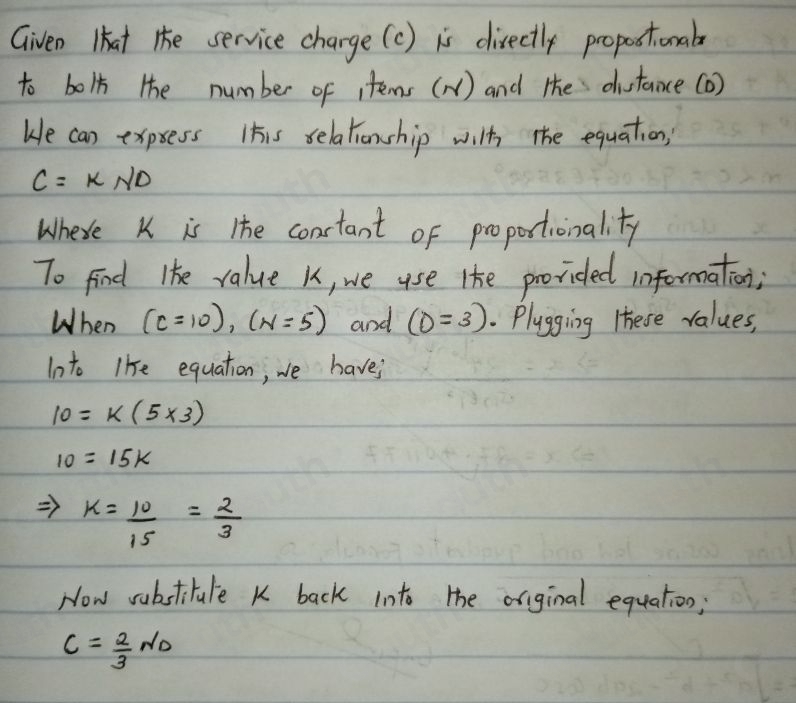 Given that the service charge (c) is directly proportional
to both the number of items (N) and the distance (D)
We can express this relationship with the equation;
C = K ND
Where K is the constant of proportionality
To find the value K, we use the provided information;
When (C=10), (N=5) and (D=3). Plugging these values,
Into the equation, we have;
10 = K (5x3)
10 = 15K
⇒ K = 10/15 = 2/3
Now substitute K back into the original equation;
C = 2/3 ND